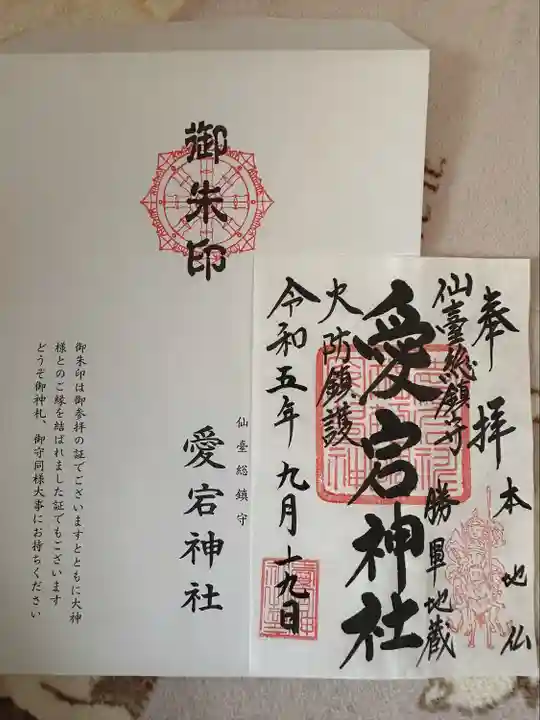 御朱印
御朱印は御参拝の証でございますとともに大神
様とのご縁を結ばれました証でもございます
どうぞ御神札、御守同様大事にお持ちください
仙臺総鎮守
愛宕神社
奉拝
本地仏
仙臺総鎮守
勝軍地蔵
愛宕神社
火防鎮護
令和五年九月十九日